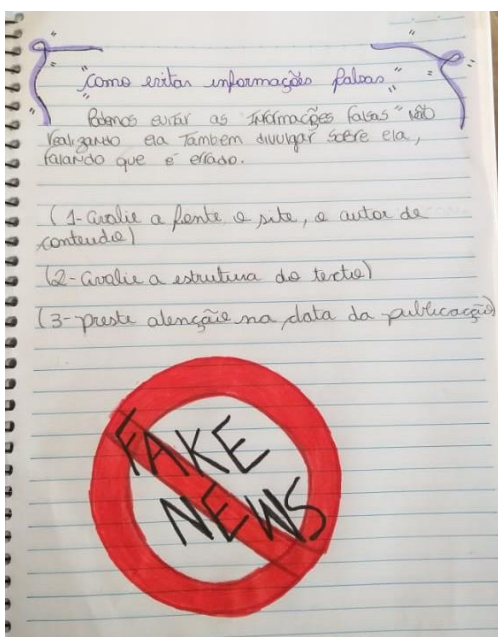 "Como evitar informações falsas"
Podemos evitar as Informações falsas "não
realizando ela Tambem divulgar sobre ela,
falando que é errado.
(1-avalie a fonte o site, o autor de
conteudio)
(2-avalie a estrutura do texto)
(3-preste atenção na data da publicação)
FAKE
NEWS